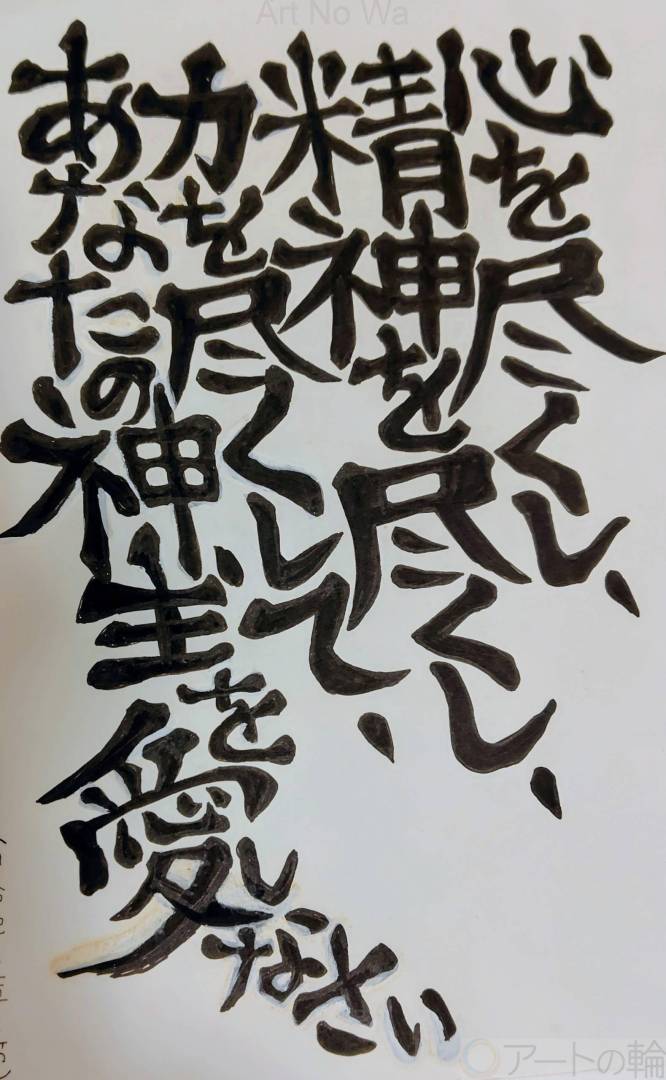 Art No Wa
心を尽くし、
精神を尽くし、
力を尽くして、
あなたの神、主を愛しなさい
アートの輪